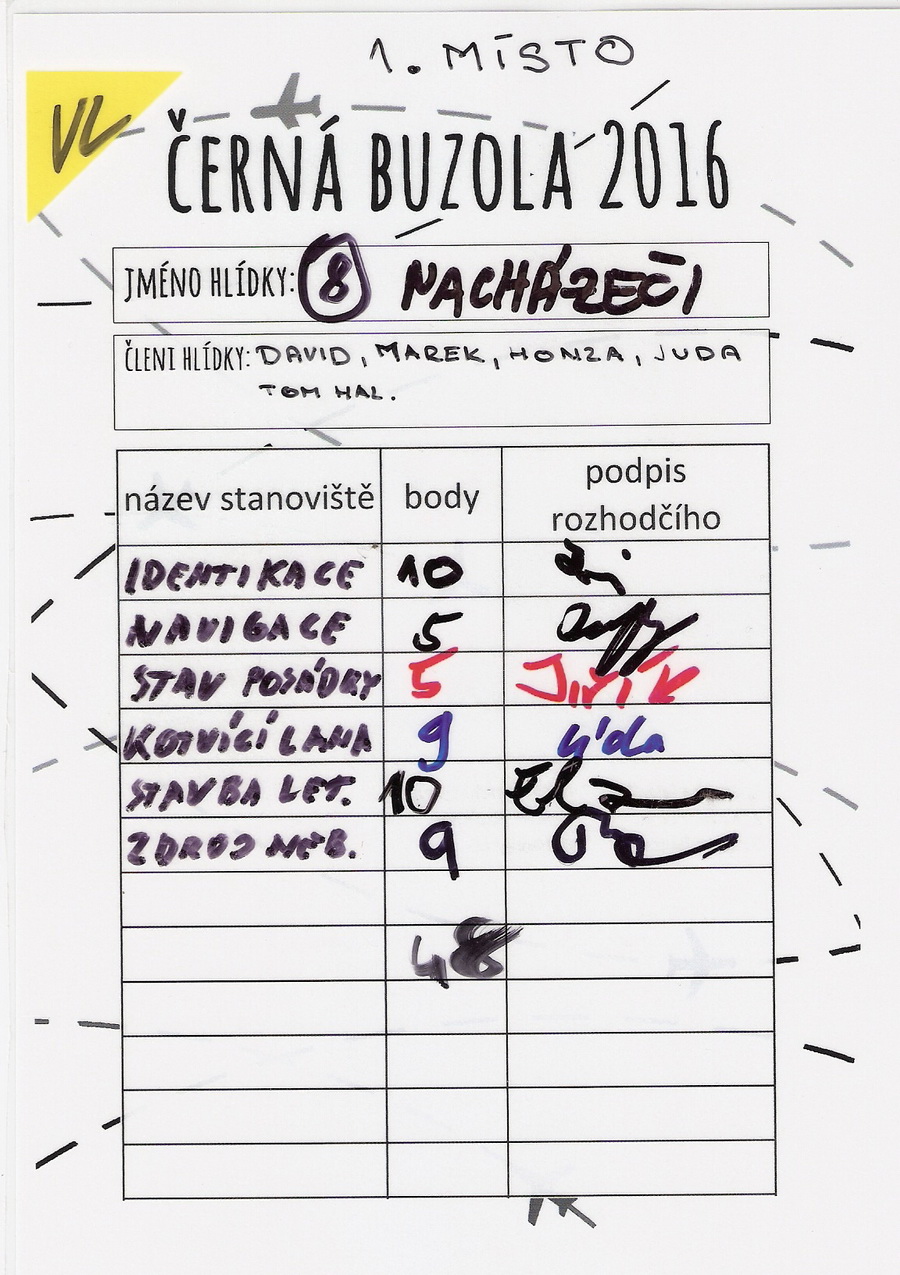 1. MÍSTO
VL
ČERNÁ BUZOLA 2016
JMÉNO HLÍDKY: 8 NACHÁZEČI
ČLENI HLÍDKY: DAVID, MAREK, HONZA, JUDA
TOM HAL.
název stanoviště body podpis rozhodčího
IDENTIKACE 10
NAVIGACE 5
STAV POSÁDKY 5 Jiřík
KOTVÍCÍ LANA 9 Lída
STAVBA LET. 10
ZDROJ NEB. 9
48